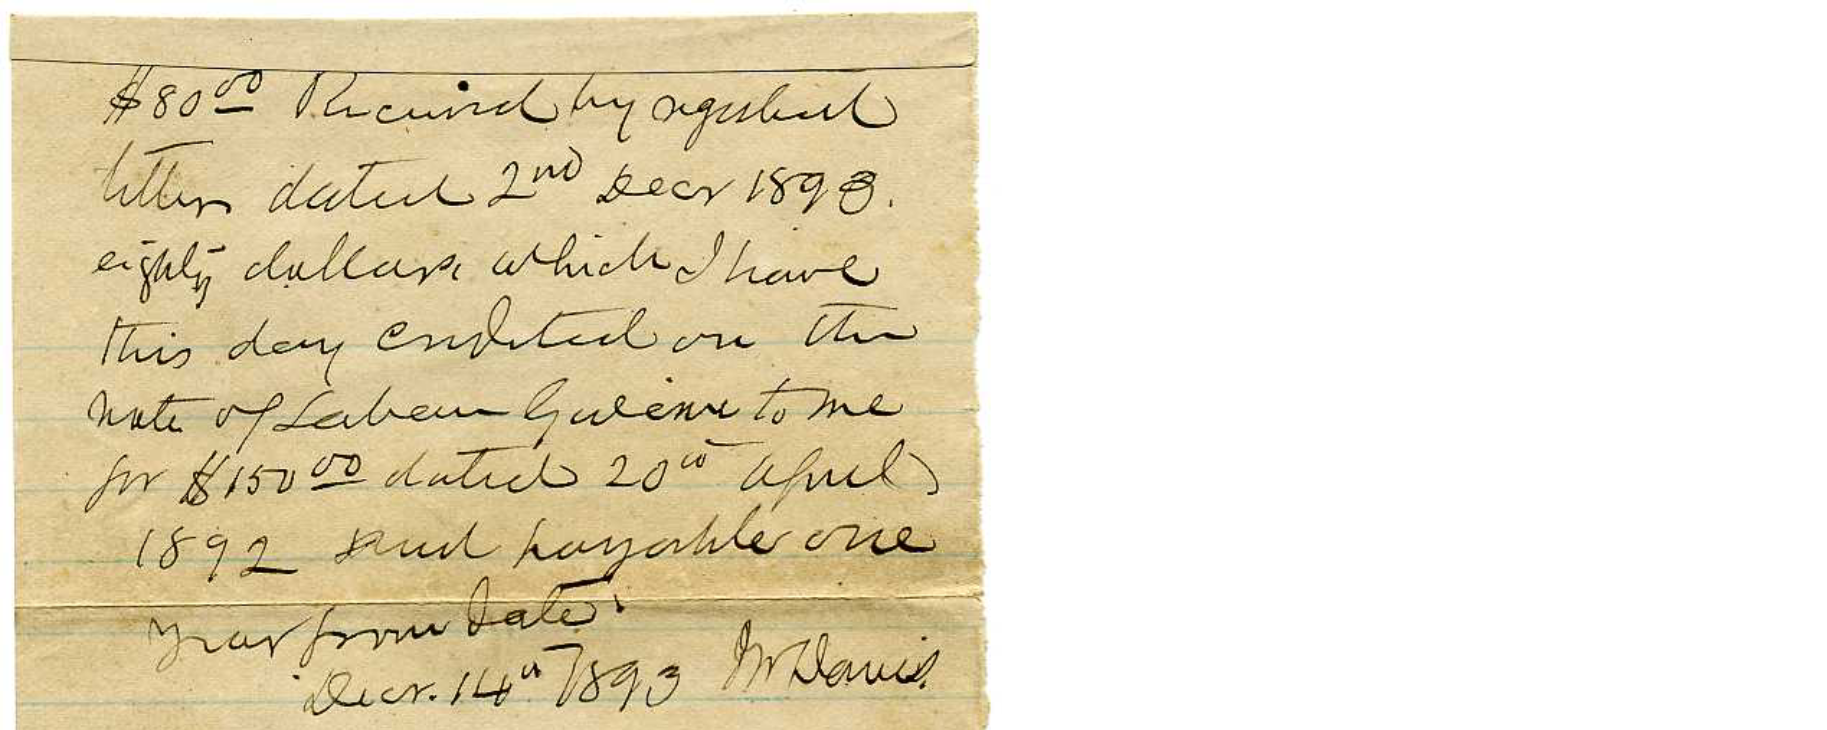 $80.00 Received by registered
letter dated 2nd Decr 1893.
eighty dollars, which I have
this day credited on the
note of Laban to me
for $150.00 dated 20th April
1892 and payable one
year from date.
Decr. 14th 1893 Davis.